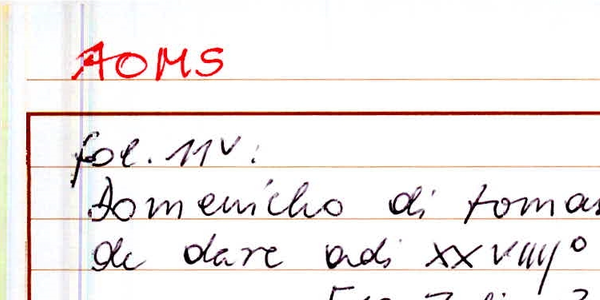 AOMS
fol. 11v.
Domenicho di tomas
de dare adi xxviiijº